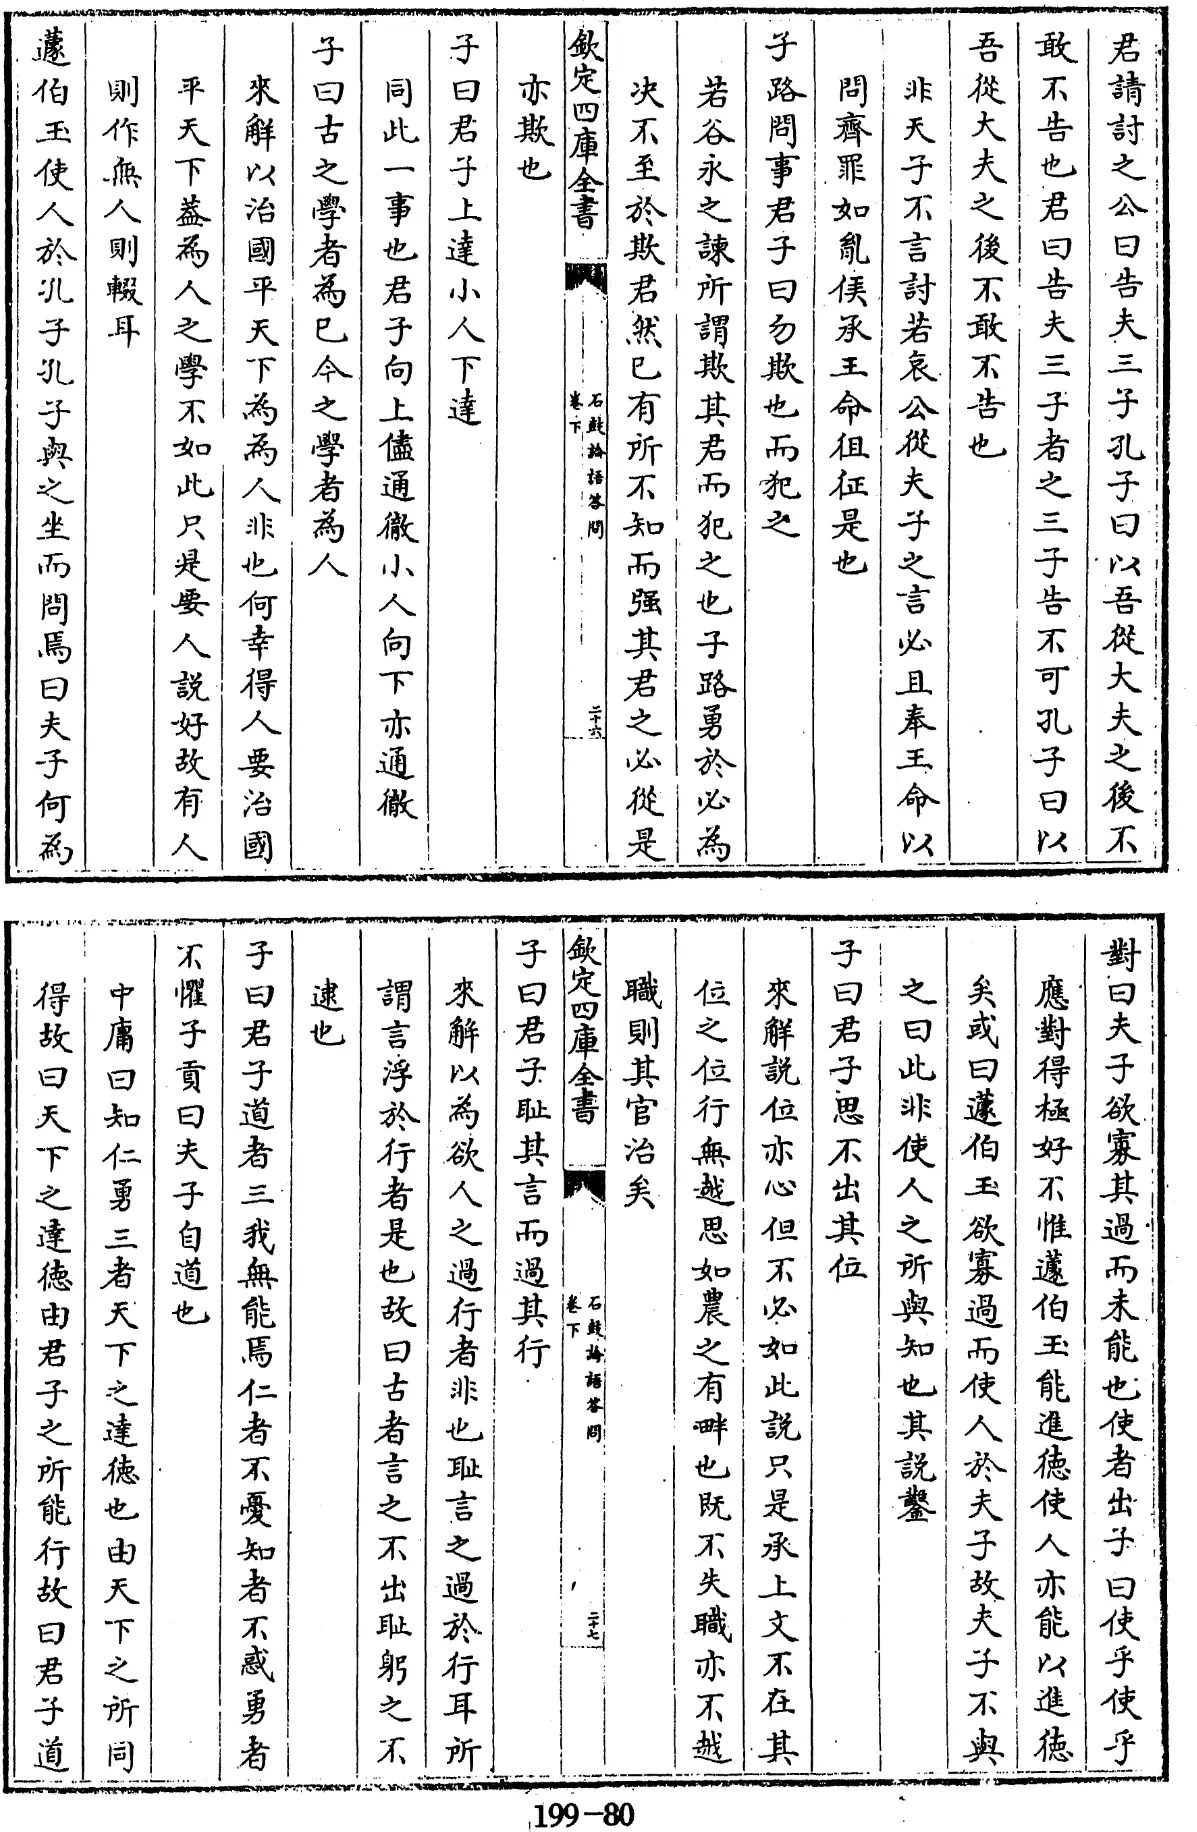 君請討之公曰告夫三子孔子曰以吾從大夫之後不
敢不告也君曰告夫三子者之三子告不可孔子曰以
吾從大夫之後不敢不告也
非天子不言討若哀公從夫子之言必且奉王命以
問齊罪如亂侯承王命徂征是也
子路問事君子曰勿欺也而犯之
若谷永之諫所謂欺其君而犯之也子路勇於必為
决不至於欺君然已有所不知而强其君之必從是
欽定四庫全書
石鼓論語答問
卷下
二十六
亦欺也
子曰君子上達小人下達
同此一事也君子向上儘通徹小人向下亦通徹
子曰古之學者為已今之學者為人
來解以治國平天下為為人非也何幸得人要治國
平天下葢為人之學不如此只是要人説好故有人
則作無人則輟耳
蘧伯玉使人於孔子孔子與之坐而問焉曰夫子何為
對曰夫子欲寡其過而未能也使者出子曰使乎使乎
應對得極好不惟蘧伯玉能進徳使人亦能以進徳
矣或曰蘧伯玉欲寡過而使人於夫子故夫子不與
之曰此非使人之所與知也其説鑿
子曰君子思不出其位
來解説位亦心但不必如此説只是承上文不在其
位之位行無越思如農之有畔也既不失職亦不越
職則其官治矣
欽定四庫全書
石鼓論語答問
卷下
二十七
子曰君子耻其言而過其行
來解以為欲人之過行者非也耻言之過於行耳所
謂言浮於行者是也故曰古者言之不出耻躬之不
逮也
子曰君子道者三我無能焉仁者不憂知者不惑勇者
不懼子貢曰夫子自道也
中庸曰知仁勇三者天下之達徳也由天下之所同
得故曰天下之達徳由君子之所能行故曰君子道
199-80